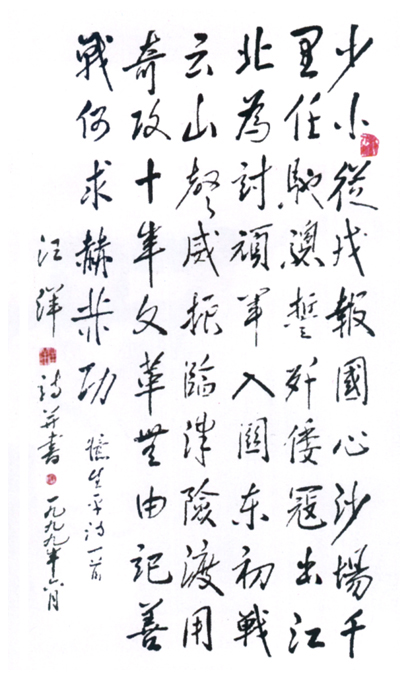 少小從戎報國心沙場千
里任馳騁誓歼倭寇出江
北為討頑軍入關东初戰
云山聲威振臨津險渡用
奇攻十年文革無由記善
戰何求赫赫功
憶生平诗一首
汪洋
诗并書 一九九九年六月